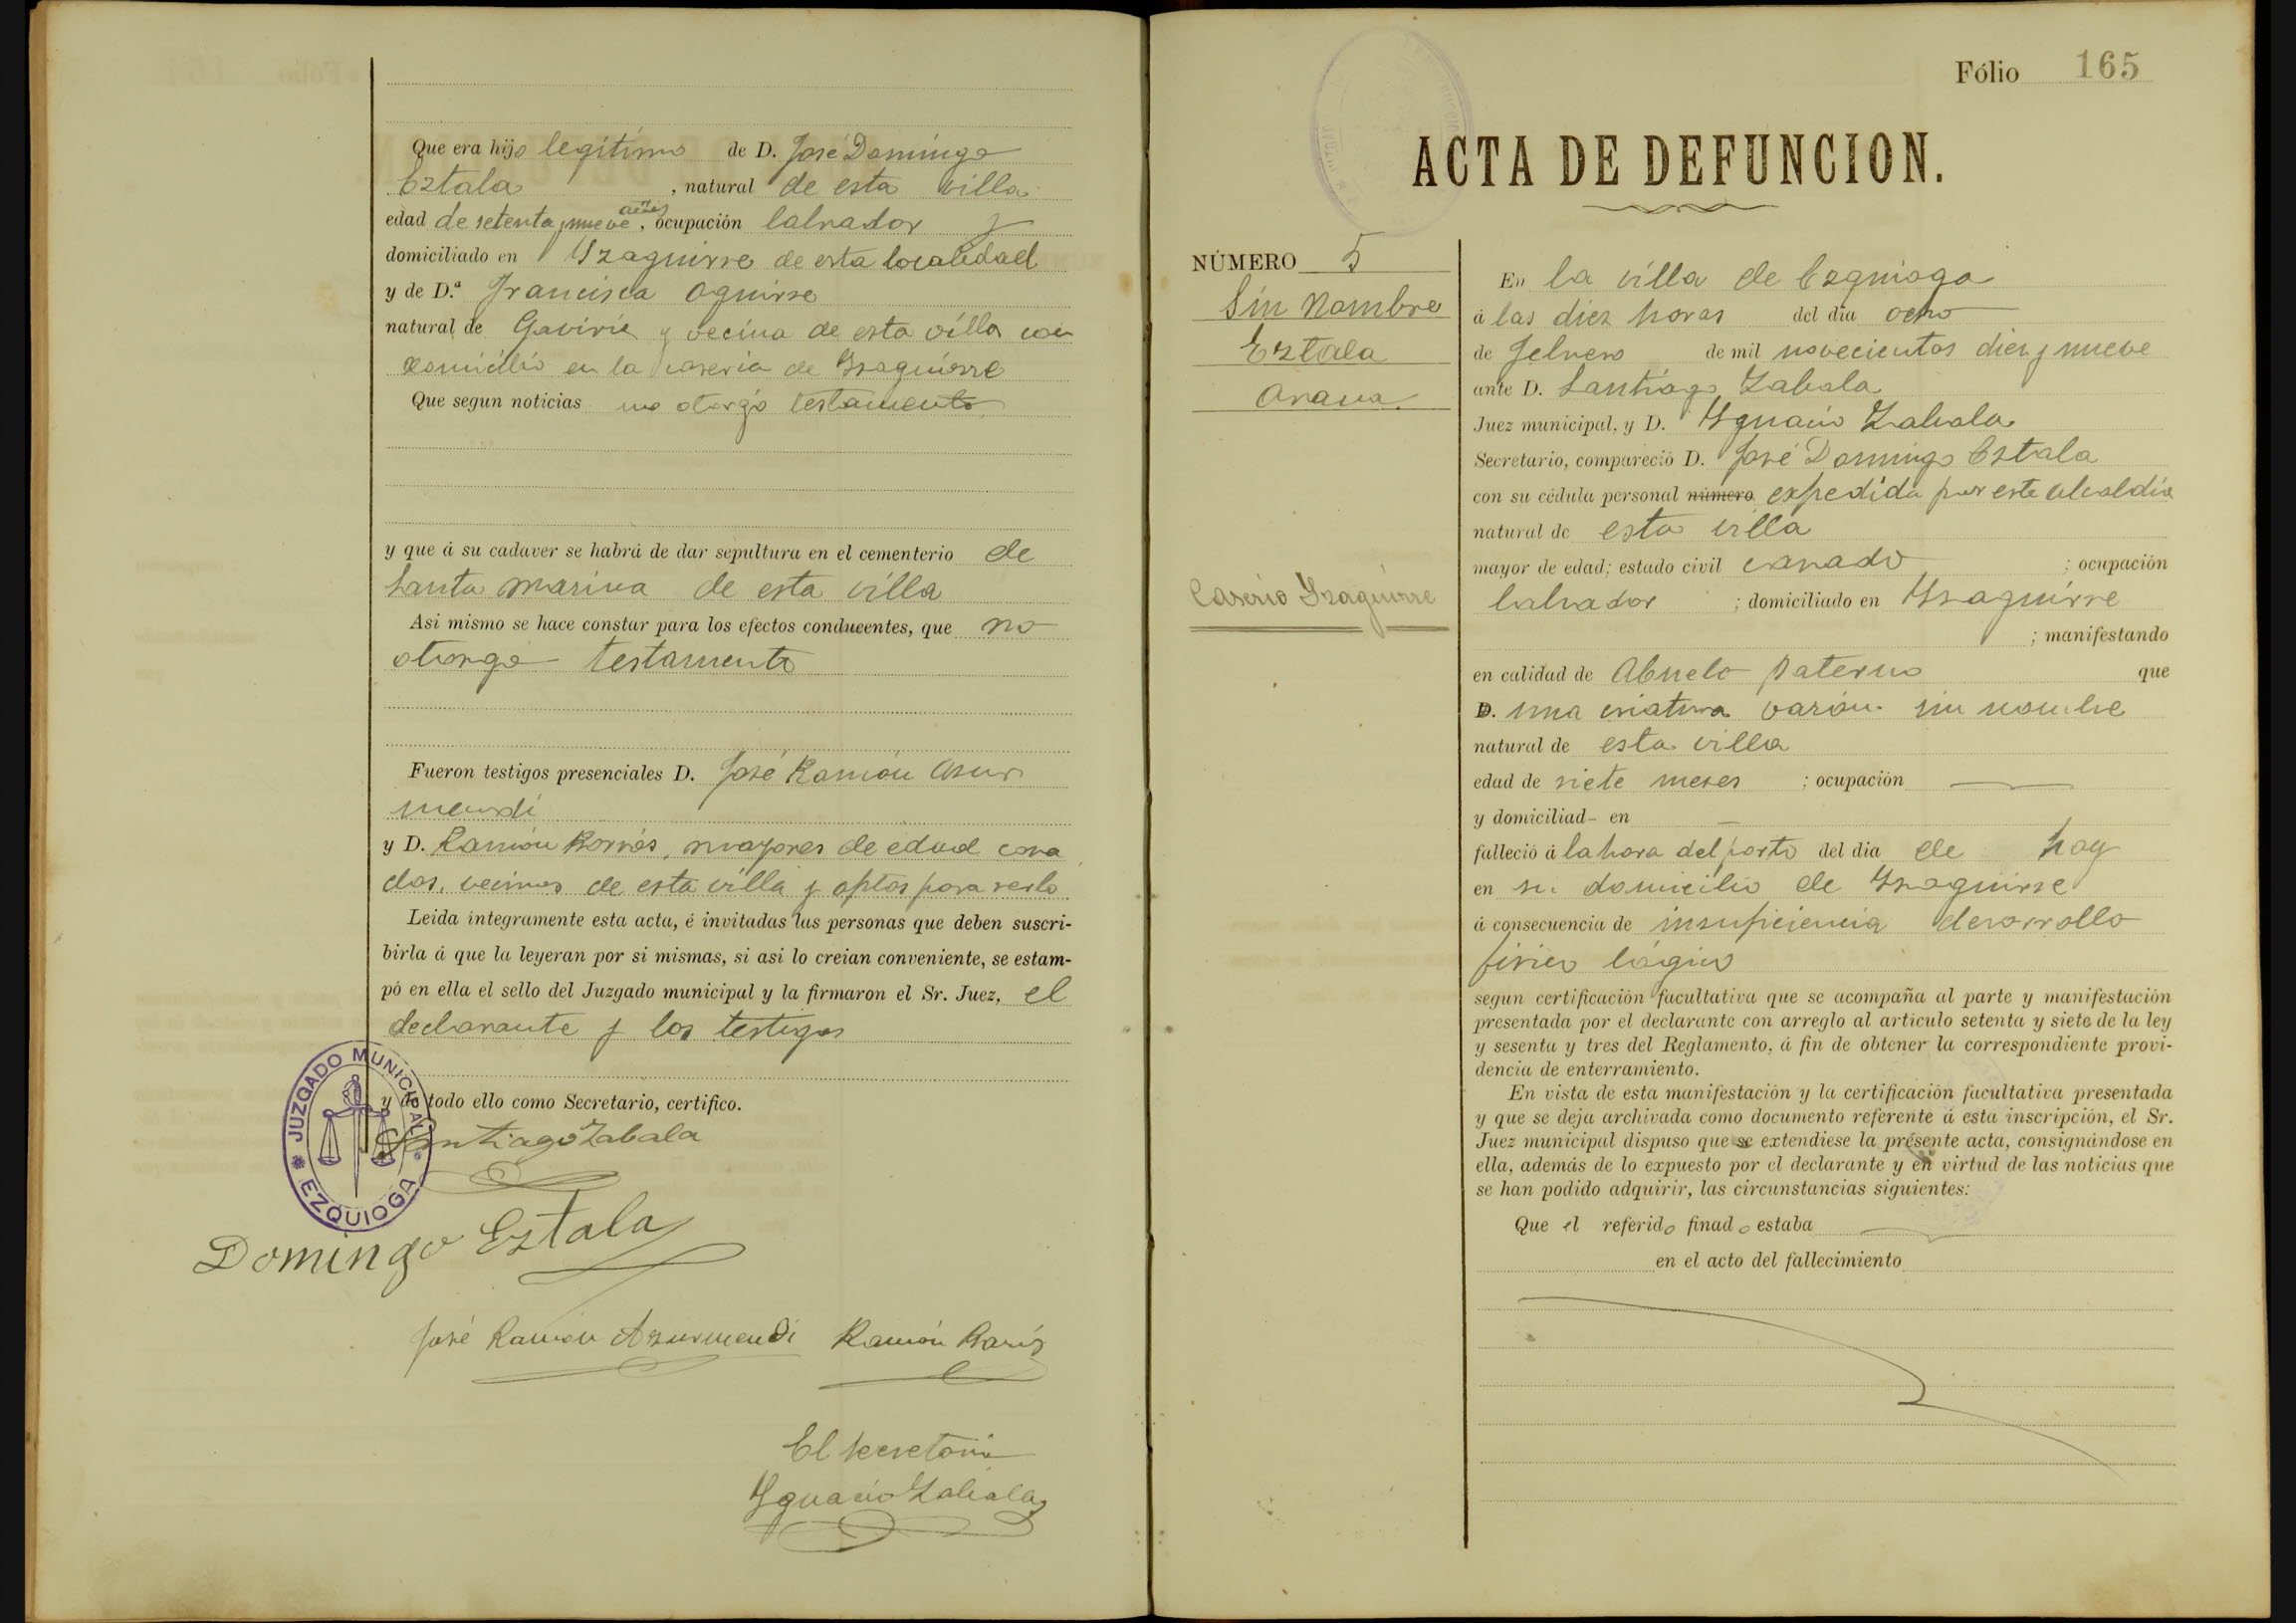 Que era hijo legítimo de D. José Domingo
Eztala, natural de esta villa
edad de setenta y nueve años, ocupación labrador y
domiciliado en Yzaguirre de esta localidad
y de D.ª Francisca Aguirre
natural de Gaviria y vecina de esta villa con
domicilio en la caseria de Yzaguirre
Que segun noticias no otorgó testamento
y que á su cadaver se habrá de dar sepultura en el cementerio de
Santa Marina de esta villa
Asi mismo se hace constar para los efectos conducentes, que no
otorgó testamento
Fueron testigos presenciales D. José Ramón Azur
mendi
y D. Ramón Barrós, mayores de edad casa
dos, vecinos de esta villa y aptos para serlo
Leida íntegramente esta acta, é invitadas las personas que deben suscri-
birla á que la leyeran por si mismas, si asi lo creian conveniente, se estam-
pó en ella el sello del Juzgado municipal y la firmaron el Sr. Juez, el
declarante y los testigos
y de todo ello como Secretario, certifico.
JUZGADO MUNICIPAL
EZQUIOGA
Santiago Zabala
Domingo Eztala
José Ramón Azurmendi Ramón
El Secretario
Ygnacio Zabala
Fólio 165
ACTA DE DEFUNCION.
NÚMERO 5
Sin Nombre
Eztala
Arana
Caserio Yzaguirre
En la villa de Ezquioga
á las diez horas del dia ocho
de febrero de mil novecientos diez y nueve
ante D. Santiago Zabala
Juez municipal, y D. Ygnacio Zabala
Secretario, compareció D. José Domingo Eztala
con su cédula personal número expedida por este alcaldia
natural de esta villa
mayor de edad; estado civil casado ; ocupación
labrador ; domiciliado en Yzaguirre
; manifestando
en calidad de Abuelo paterno que
D. una criatura varón sin nombre
natural de esta villa
edad de siete meses ; ocupación
y domiciliad- en
falleció á la hora del parto del dia de hoy
en su domicilio de Yzaguirre
á consecuencia de insuficiencia desarrollo
segun certificación facultativa que se acompaña al parte y manifestación
presentada por el declarante con arreglo al articulo setenta y siete de la ley
y sesenta y tres del Reglamento, á fin de obtener la correspondiente provi-
dencia de enterramiento.
En vista de esta manifestación y la certificación facultativa presentada
y que se deja archivada como documento referente á esta inscripción, el Sr.
Juez municipal dispuso que se extendiese la presente acta, consignándose en
ella, además de lo expuesto por el declarante y en virtud de las noticias que
se han podido adquirir, las circunstancias siguientes:
Que el referido finado estaba
en el acto del fallecimiento